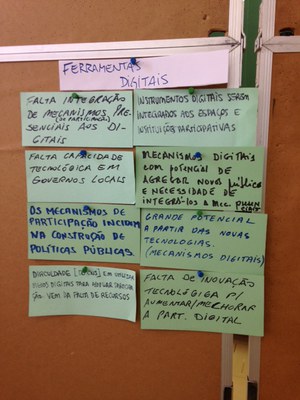 FERRAMENTAS
DIGITAIS
FALTA INTEGRAÇÃO
DE MECANISMOS PRE-
(DE PARTICIPAÇÃO)
SENCIAIS AOS DI-
GITAIS
INSTRUMENTOS DIGITAIS SEREM
INTEGRADOS AOS ESPAÇOS E
INSTITUIÇÕES PARTICIPATIVAS
FALTA CAPACIDADE
TECNOLÓGICA EM
GOVERNOS LOCAIS
MECANISMOS DIGITAIS
COM POTENCIAL DE
AGREGAR NOVOS públicos
E NECESSIDADE DE
INTEGRÁ-LOS A MEC.
OS MECANISMOS DE
PARTICIPAÇÃO INCIDAM
NA CONSTRUÇÃO DE
POLÍTICAS PÚBLICAS.
GRANDE POTENCIAL
A PARTIR DAS NOVAS
TECNOLOGIAS.
(MECANISMOS DIGITAIS)
DIFICULDADE EM UTILIZAR
MEIOS DIGITAIS PARA
VEM DA FALTA DE RECURSOS
FALTA DE INOVAÇÃO
TECNOLÓGICA P/
AUMENTAR/MELHORAR
A PART. DIGITAL